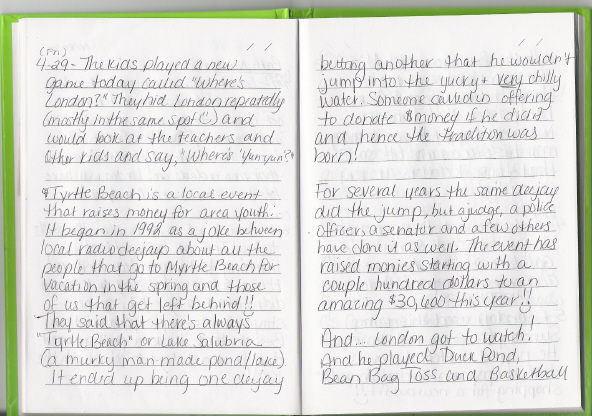 (Fri)
4-29- The kids played a new
game today called "Where's
London?" They hid London repeatedly
(mostly in the same spot ☺) and
would look at the teachers and
other kids and say, "Where's 'Yun-yun'?"
*Tyrtle Beach is a local event
that raises money for area youth.
It began in 1992 as a joke between
local radio deejays about all the
people that go to Myrtle Beach for
vacation in the spring and those
of us that get left behind!!
They said that there's always
"Tyrtle Beach" or Lake Salubria
(a murky man-made pond/lake).
It ended up being one deejay
betting another that he wouldn't
jump into the yucky + very chilly
water. Someone called in offering
to donate $money if he did it
and, hence the tradition was
born!
For several years the same deejay
did the jump, but a judge, a police
officer, a senator and a few others
have done it as well. The event has
raised monies starting with a
couple hundred dollars to an
amazing $30,600 this year!!
And... London got to watch!
And he played Duck Pond,
Bean Bag Toss and Basketball